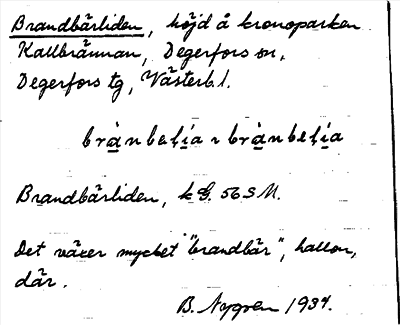 Brandbärliden, höjd å kronoparken
Kallbrännan, Degerfors sn,
Degerfors tg, Västerb. l.
brànbęlia ~ brànbęlía
Brandbärliden, k G. 56 S M.
Det växer mycket "brandbär", hallon,
där.
B. Nygren 1934.